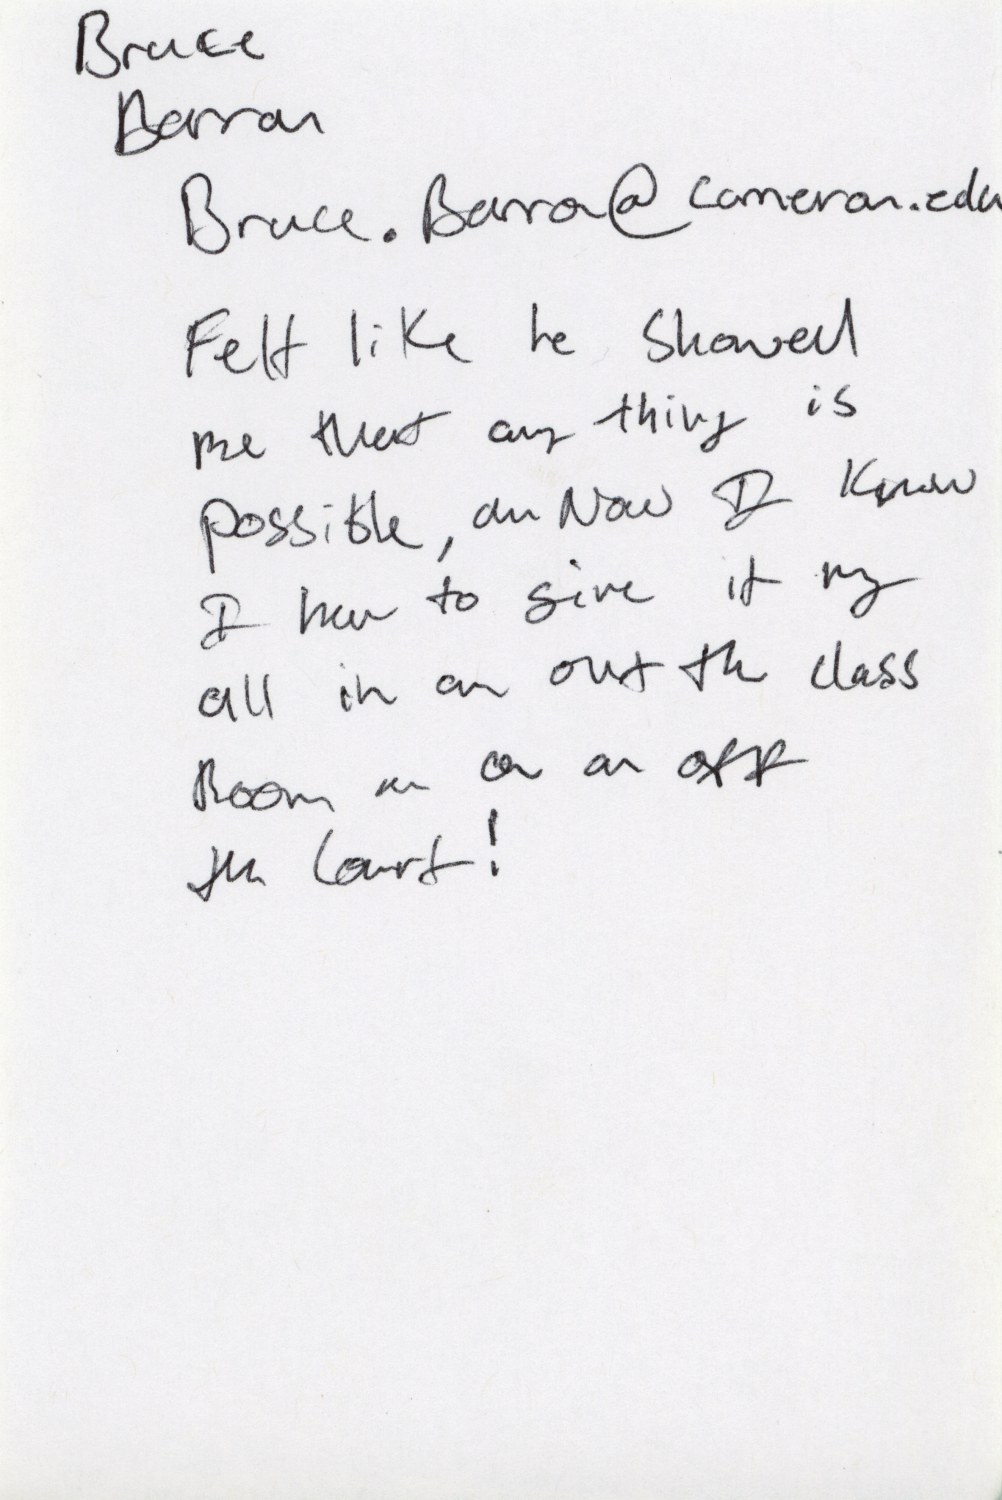 Bruce
Barron
Bruce.Barron@cameron.edu
Felt like he showed
me that any thing is
possible, an Now I Know
I have to give it my
all in an out the class
Room an on an off
the Court!